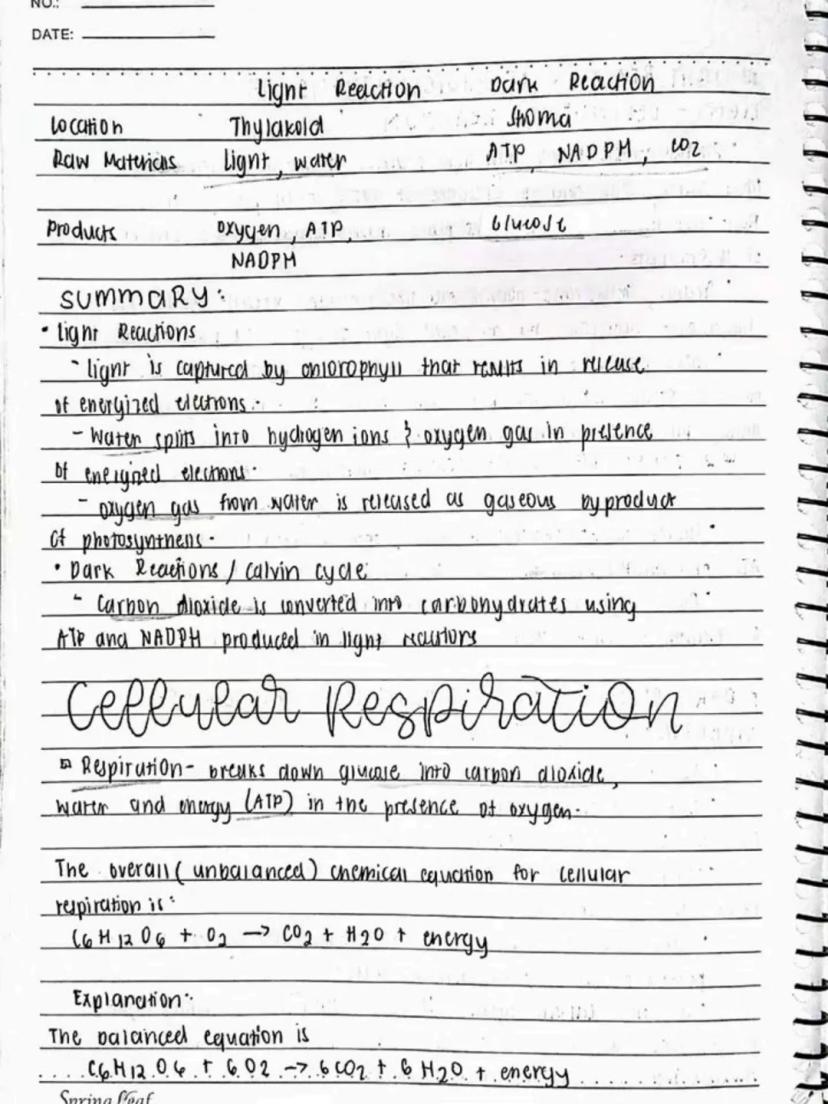 NO.:
DATE:
Light Reaction Dark Reaction
Location Thylakoid Stroma
Raw Materials Light, water ATP, NADPH, CO2
Products oxygen, ATP, Glucose
NADPH
SUMMARY:
• Light Reactions
- light is captured by chlorophyll that results in release
of energized electrons.
- Water splits into hydrogen ions & oxygen gas in presence
of energized electrons.
- oxygen gas from water is released as gaseous byproduct
of photosynthesis.
• Dark Reactions / calvin cycle
- Carbon dioxide is converted into carbohydrates using
ATP and NADPH produced in light reactions
Cellular Respiration
Respiration - breaks down glucose into carbon dioxide,
water and energy (ATP) in the presence of oxygen.
The overall (unbalanced) chemical equation for cellular
respiration is:
C6H12O6 + O2 -> CO2 + H2O + energy
Explanation:
The balanced equation is
C6H12O6 + 6O2 -> 6CO2 + 6H2O + energy
Spring Leaf